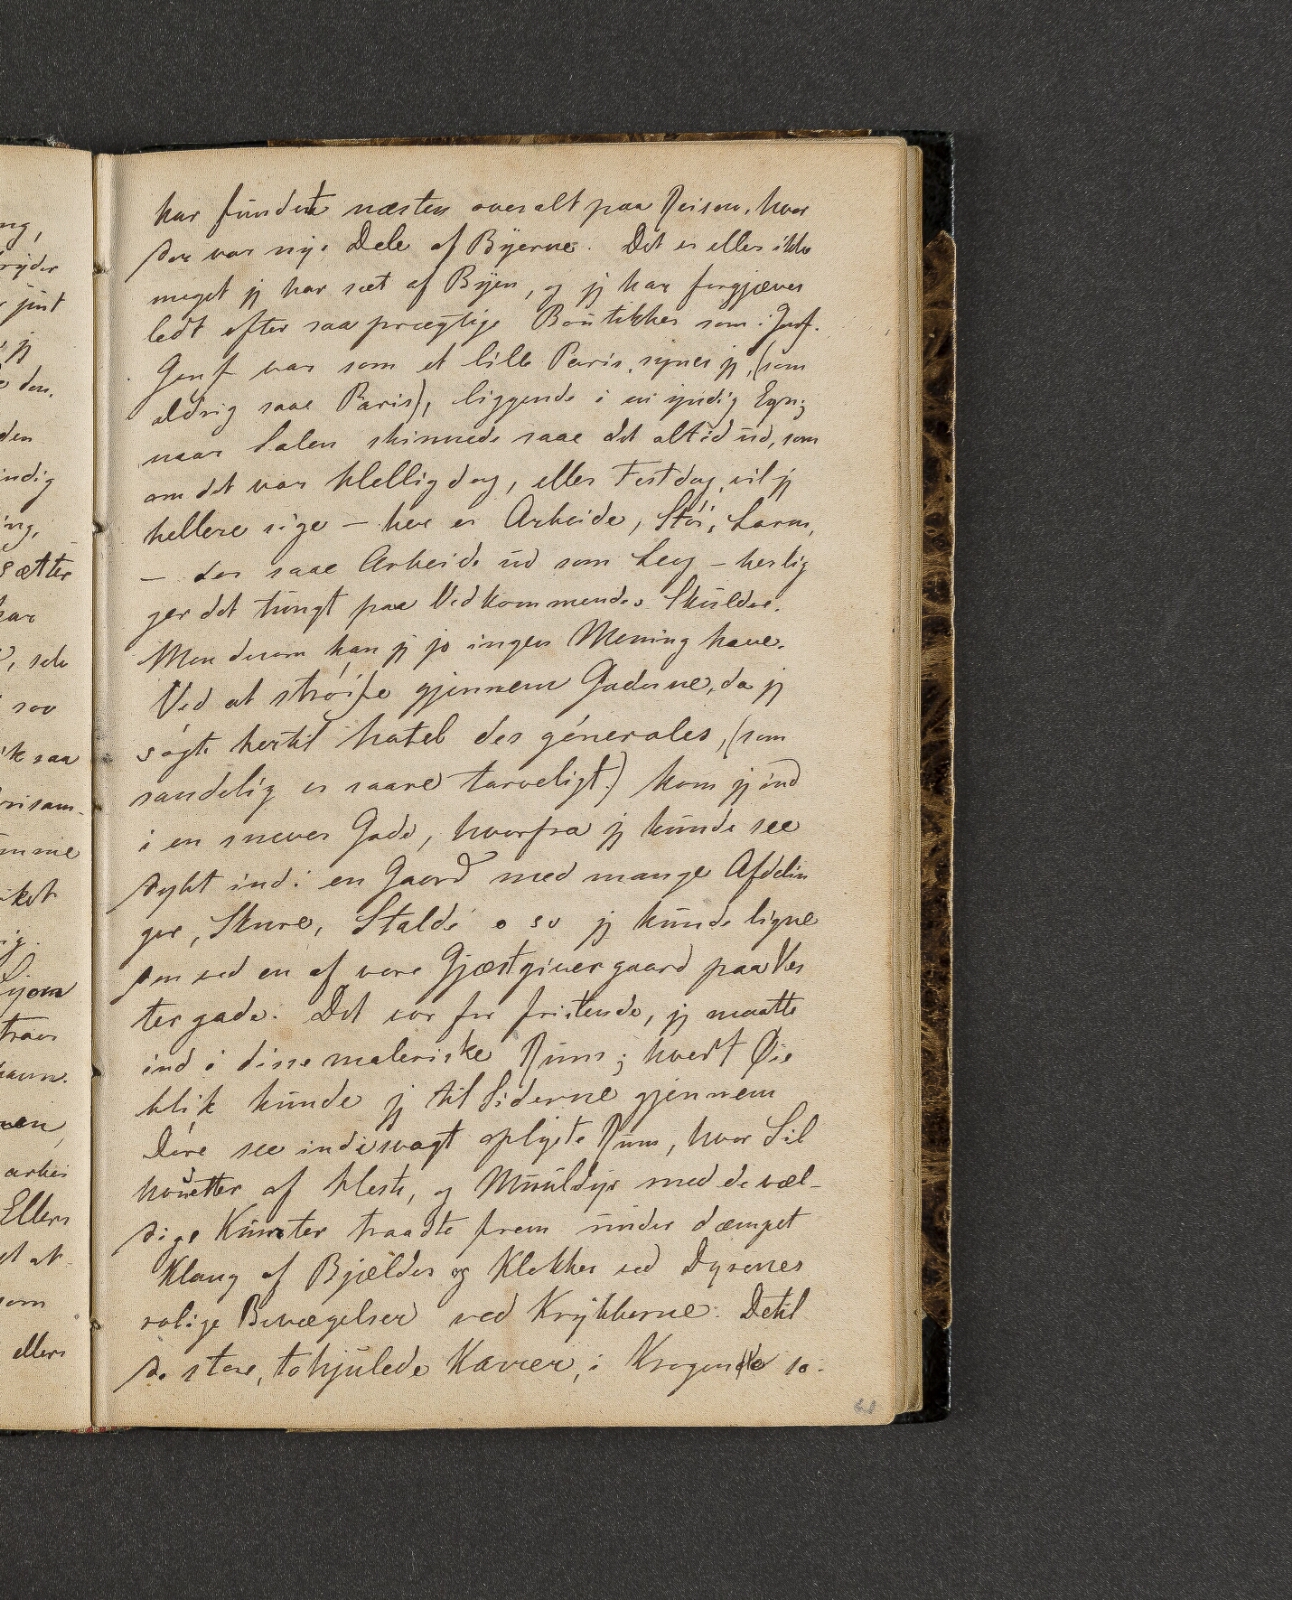 har fundet næsten overalt paa Reisen, hvor
der var nye Dele af Byerne. Det er ellers ikke
meget jeg har seet af Byen, og jeg har forgjæves
ledt efter saa prægtige Boutikker som i Genf.
Genf var som et lille Paris, synes jeg, (som
aldrig saae Paris), liggende i en yndig Egn;
naar Solen skinnede saae det altid ud, som
om det var Helligdag, eller Festdag, vil jeg
hellere sige – her er Arbeide, Støi, Larm,
– der saae Arbeide ud som Leg – her lig
ger det tungt paa Vedkommendes Skuldre.
Men derom kan jeg jo ingen Mening have.
Ved at strøife gjennem Gaderne, da jeg
søgte hertil hotel des génerales, (som
sandelig er saare tarveligt.) kom jeg ind
i en snever Gade, hvorfra jeg kunde see
dybt ind i en Gaard med mange Afdelin
ger, Skure, Stalde o s v jeg kunde ligne
den ved en af vore Gjæstgivergaard paa Ves
tergade. Det var for fristende, jeg maatte
ind i disse maleriske Rum; hvert Øie
blik kunde jeg til Siderne gjennem
Døre see ind i svagt oplyste Rum, hvor Sil
houetter af Heste, og Muuldyr med de væl-
dige Kumter traadte frem under dæmpet
Klang af Bjælder og Klokker ved Dyrenes
rolige Bevægelser ved Krybberne. Dertil
de store, tohjulede Kærrer, i Krogene so-
61
ng,
jeg
den
indig
ing,
sætter
har
saa
trisam-
ømme
Lyon
arbei
Ellers
et at
som
ellers